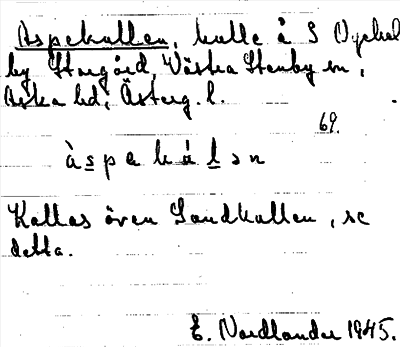 Aspekullen, kulle å S Nyckel
by Storgård, Västra Stenby sn,
Aska hd, Österg. l.
69.
à s p e k á l ə n
Kallas även Sandkullen, se
detta.
E. Nordlander 1945.